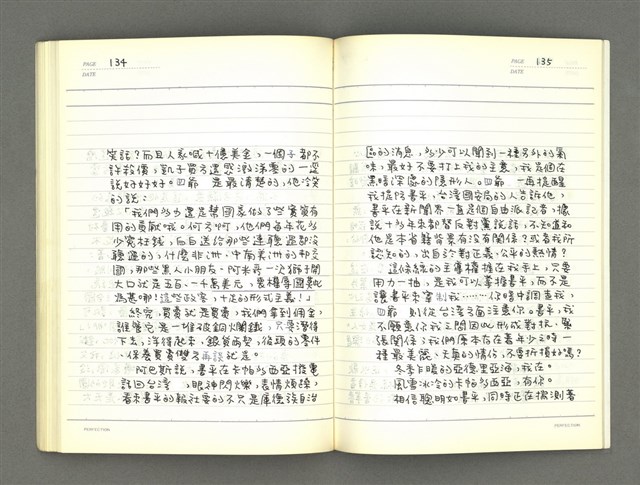 PAGE 134
DATE
笑話？而且人家喊十億美金，一個子都不
許殺價，凱子買方還感激涕零的一逕
說好好好。四爺 是最清楚的，他冷笑
的說：
「我們多少還是幫國家做了些實質有
用的貢獻哦。何可啊，他們每年花多
少冤枉錢，白白送給那些連聽過都沒
聽過的，什麼非洲、中南美洲的邦交
國，那些黑人小朋友、阿米哥一次獅子開
大口就是五百、一千萬美元，喪權辱國莫此
為甚哪！這些政客，十足的形式主義！」
終究，買賣就是買賣，我們拿到佣金，
誰管它是一堆破銅爛鐵，只要潛得
下去，浮得起來，銀貨兩契，後頭的零件
、保養買賣雙方再談就是。
阿巴斯說，書平在卡帕多西亞撥電
話回台灣 ，眼神閃爍，表情煩躁，
看來書平的報社要的不只是庫德族自治
PERFECTION
PAGE 135
DATE
區的消息，多少可以聞到一種另外的氣
味，最好不要打上我的主意，我是個在
黑暗深處的隱形人。四爺 一再提醒
我提防書平，台灣國安局的人告訴他，
書平在新聞界一直是個自由派記者，據
說十多年來都替反對黨說話，不知道和
他是本省籍背景有沒有關係？或者我所
認知的，出自於對正義、公平的熱情？
這條線的主導權握在我手上，只要
用力一抽，是我可以掌握書平，而不是
讓書平來牽制我……你暗中調查我，
四爺 則從台灣方面注意你。書平，我
不願意你我之間因此形成對抗、緊
張關係，我們原本存在著年少之時一
種最美麗、天真的情份，不要折損好嗎？
冬季乍暖的亞德里亞海，我在。
風雪冰冷的卡帕多西亞，有你。
相信聰明如書平，同時正在揣測著
PERFECTION